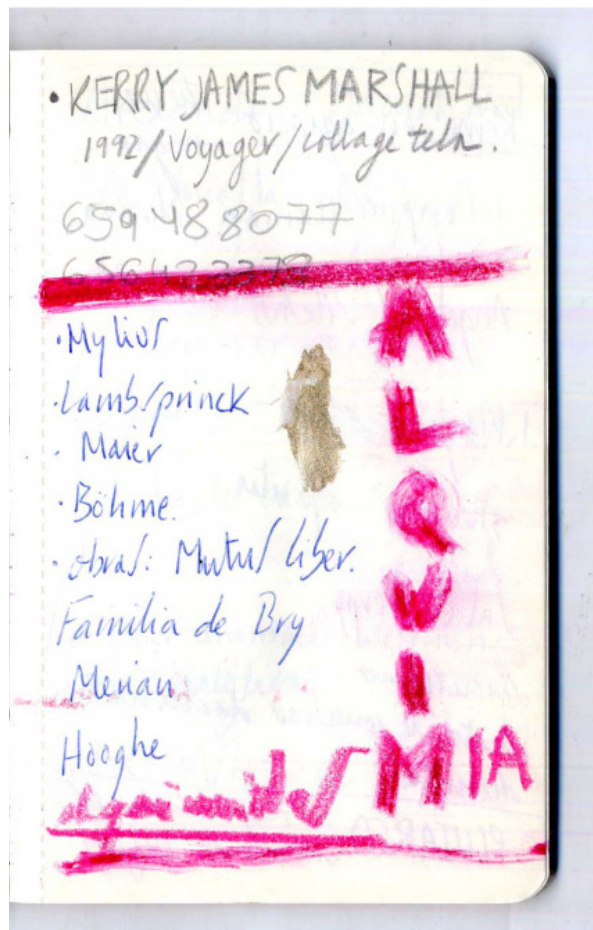 • KERRY JAMES MARSHALL
1992/Voyager/collage tela.
659 488077
656423378
• Mylius
• Lambsprinck
• Maier
• Böhme.
• obras: Mutus Liber.
Familia de Bry
Merian
Hooghe
alquimistas
ALQVIMIA